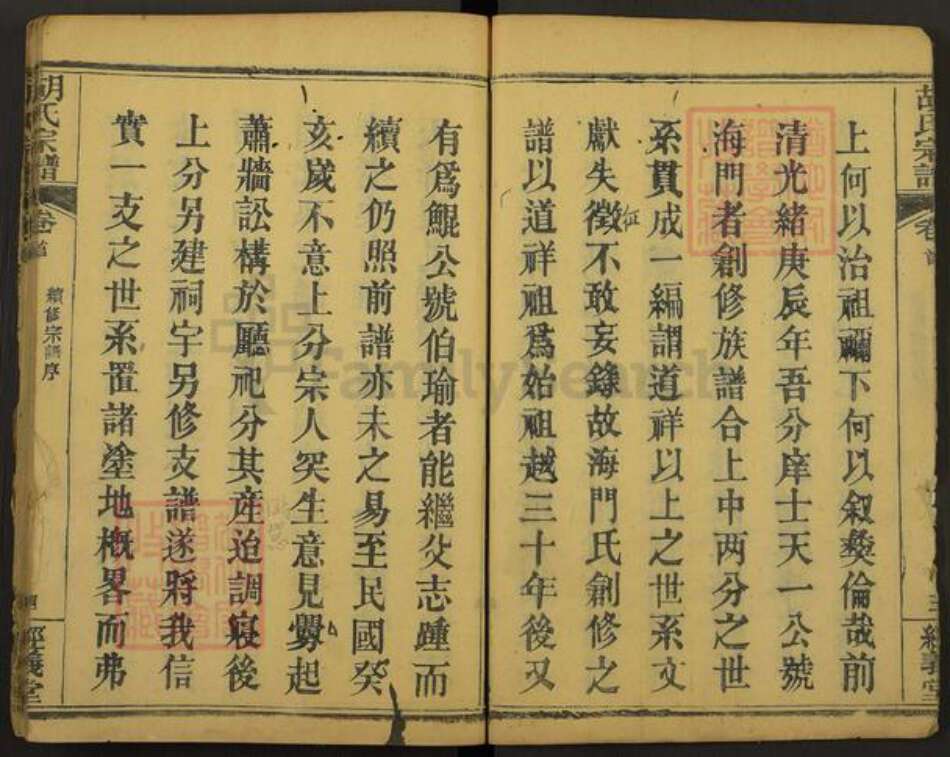 胡氏宗譜
卷首
三
經義堂
上何以治祖禰下何以叙彜倫哉前
清光緒庚辰年吾分庠士天一公號
海門者創修族譜合上中两分之世
系貫成一編謂道祥以上之世系文
獻失徵不敢妄錄故海門氏創修之
征
譜以道祥祖爲始祖越三十年後又
有爲鯤公號伯瑜者能繼父志踵而
續之仍照前譜亦未之易至民國癸
亥歲不意上分宗人突生意見釁起
蕭牆訟構於廳祀分其产迫調寢後
上分另建祠宇另修支譜遂將我信
實一支之世系置諸塗地概畧而弗
胡氏宗譜
卷首
續修宗譜序
四
經義堂
FamilySearch